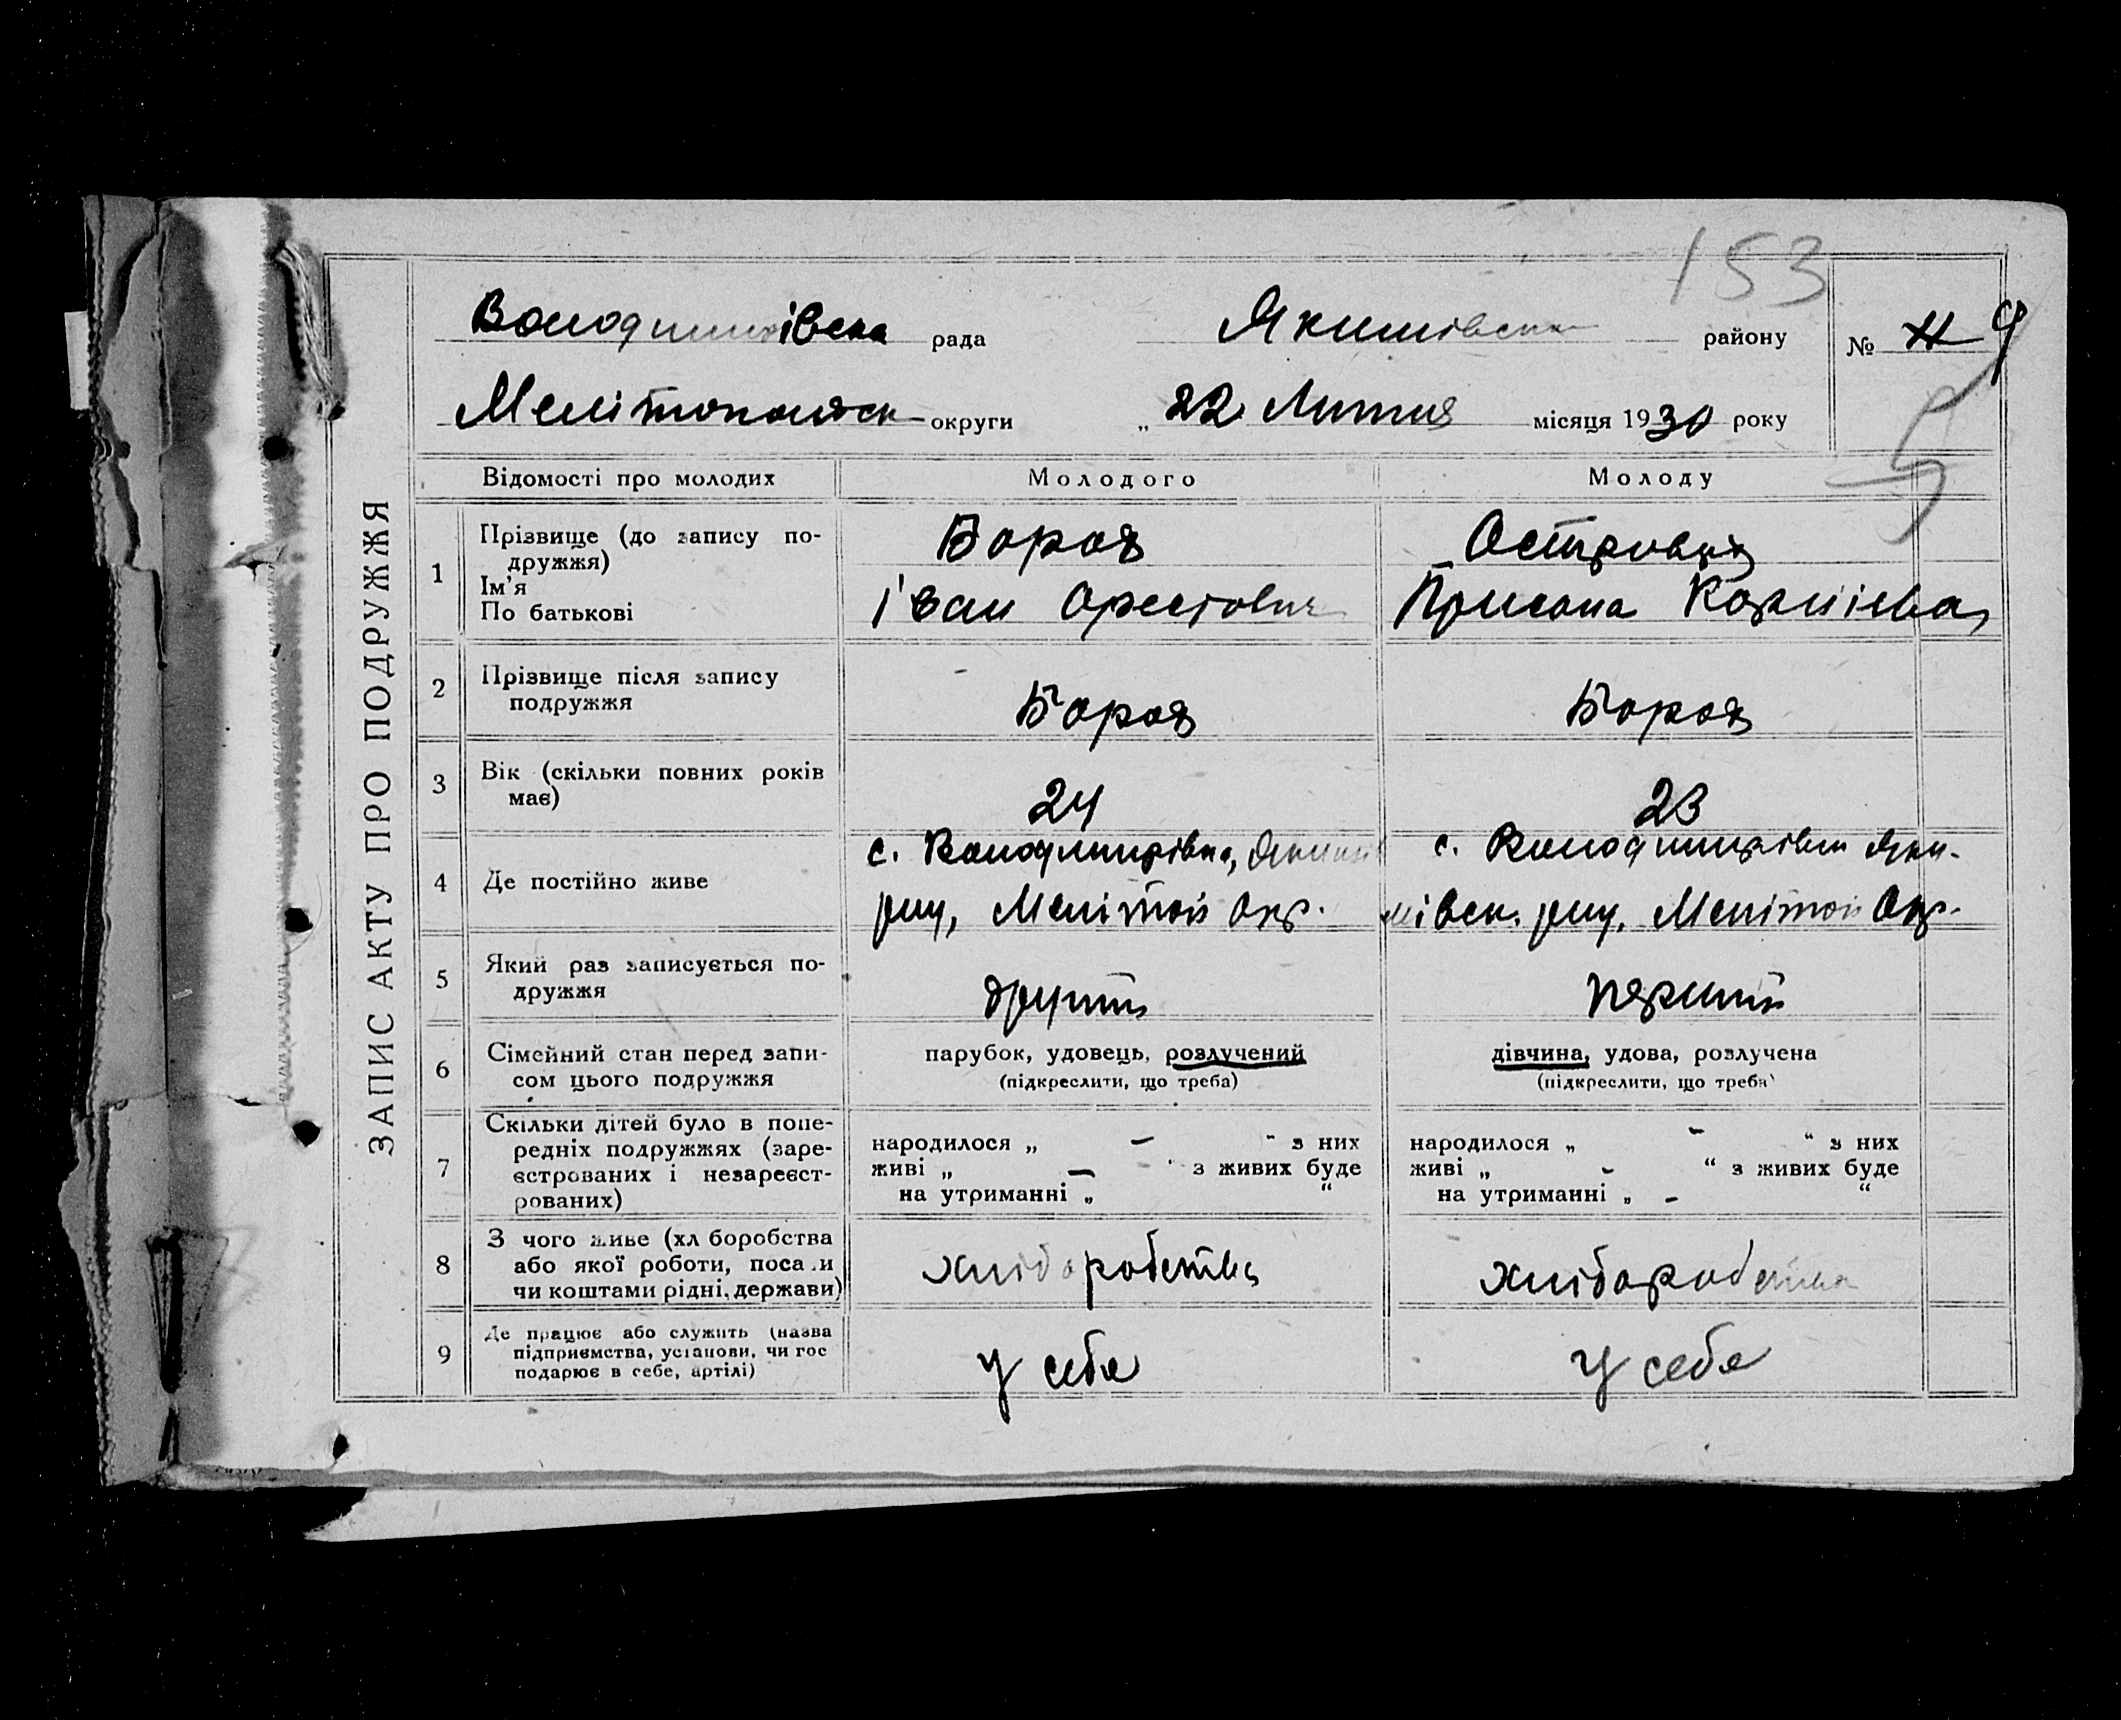 153
ЗАПИС АКТУ ПРО ПОДРУЖЖЯ
Володимирівська рада Якимівськ району № 9
Мелітопольськ округи „ 22 Лютня місяця 1930 року
Відомості про молодих Молодого Молоду
1 Прізвище (до запису по-
дружжя)
Ім'я
По батькові
Іван Орестович
2 Прізвище після запису
подружжя
3 Вік (скільки повних років
має)
24 23
4 Де постійно живе
с. Володимирівка, Якимів
рну, Мелітоп Окр.
с. Володимирівка Яки-
мівськ. рну, Мелітоп Окр.
5 Який раз записується по-
дружжя
другий перший
6 Сімейний стан перед запи-
сом цього подружжя
парубок, удовець, розлучений
(підкреслити, що треба)
дівчина, удова, розлучена
(підкреслити, що треба)
7 Скільки дітей було в попе-
редніх подружжях (заре-
єстрованих і незареєст-
рованих)
народилося „ — “ з них
живі „ — “ з живих буде
на утриманні „ “
народилося „ - “ з них
живі „ - “ з живих буде
на утриманні „ - “
8 З чого живе (хліборобства
або якої роботи, посади
чи коштами рідні, держави)
хліборобства хліборобства
9 Де працює або служить (назва
підприємства, установи, чи гос
подарює в себе, артілі)
у себе у себе